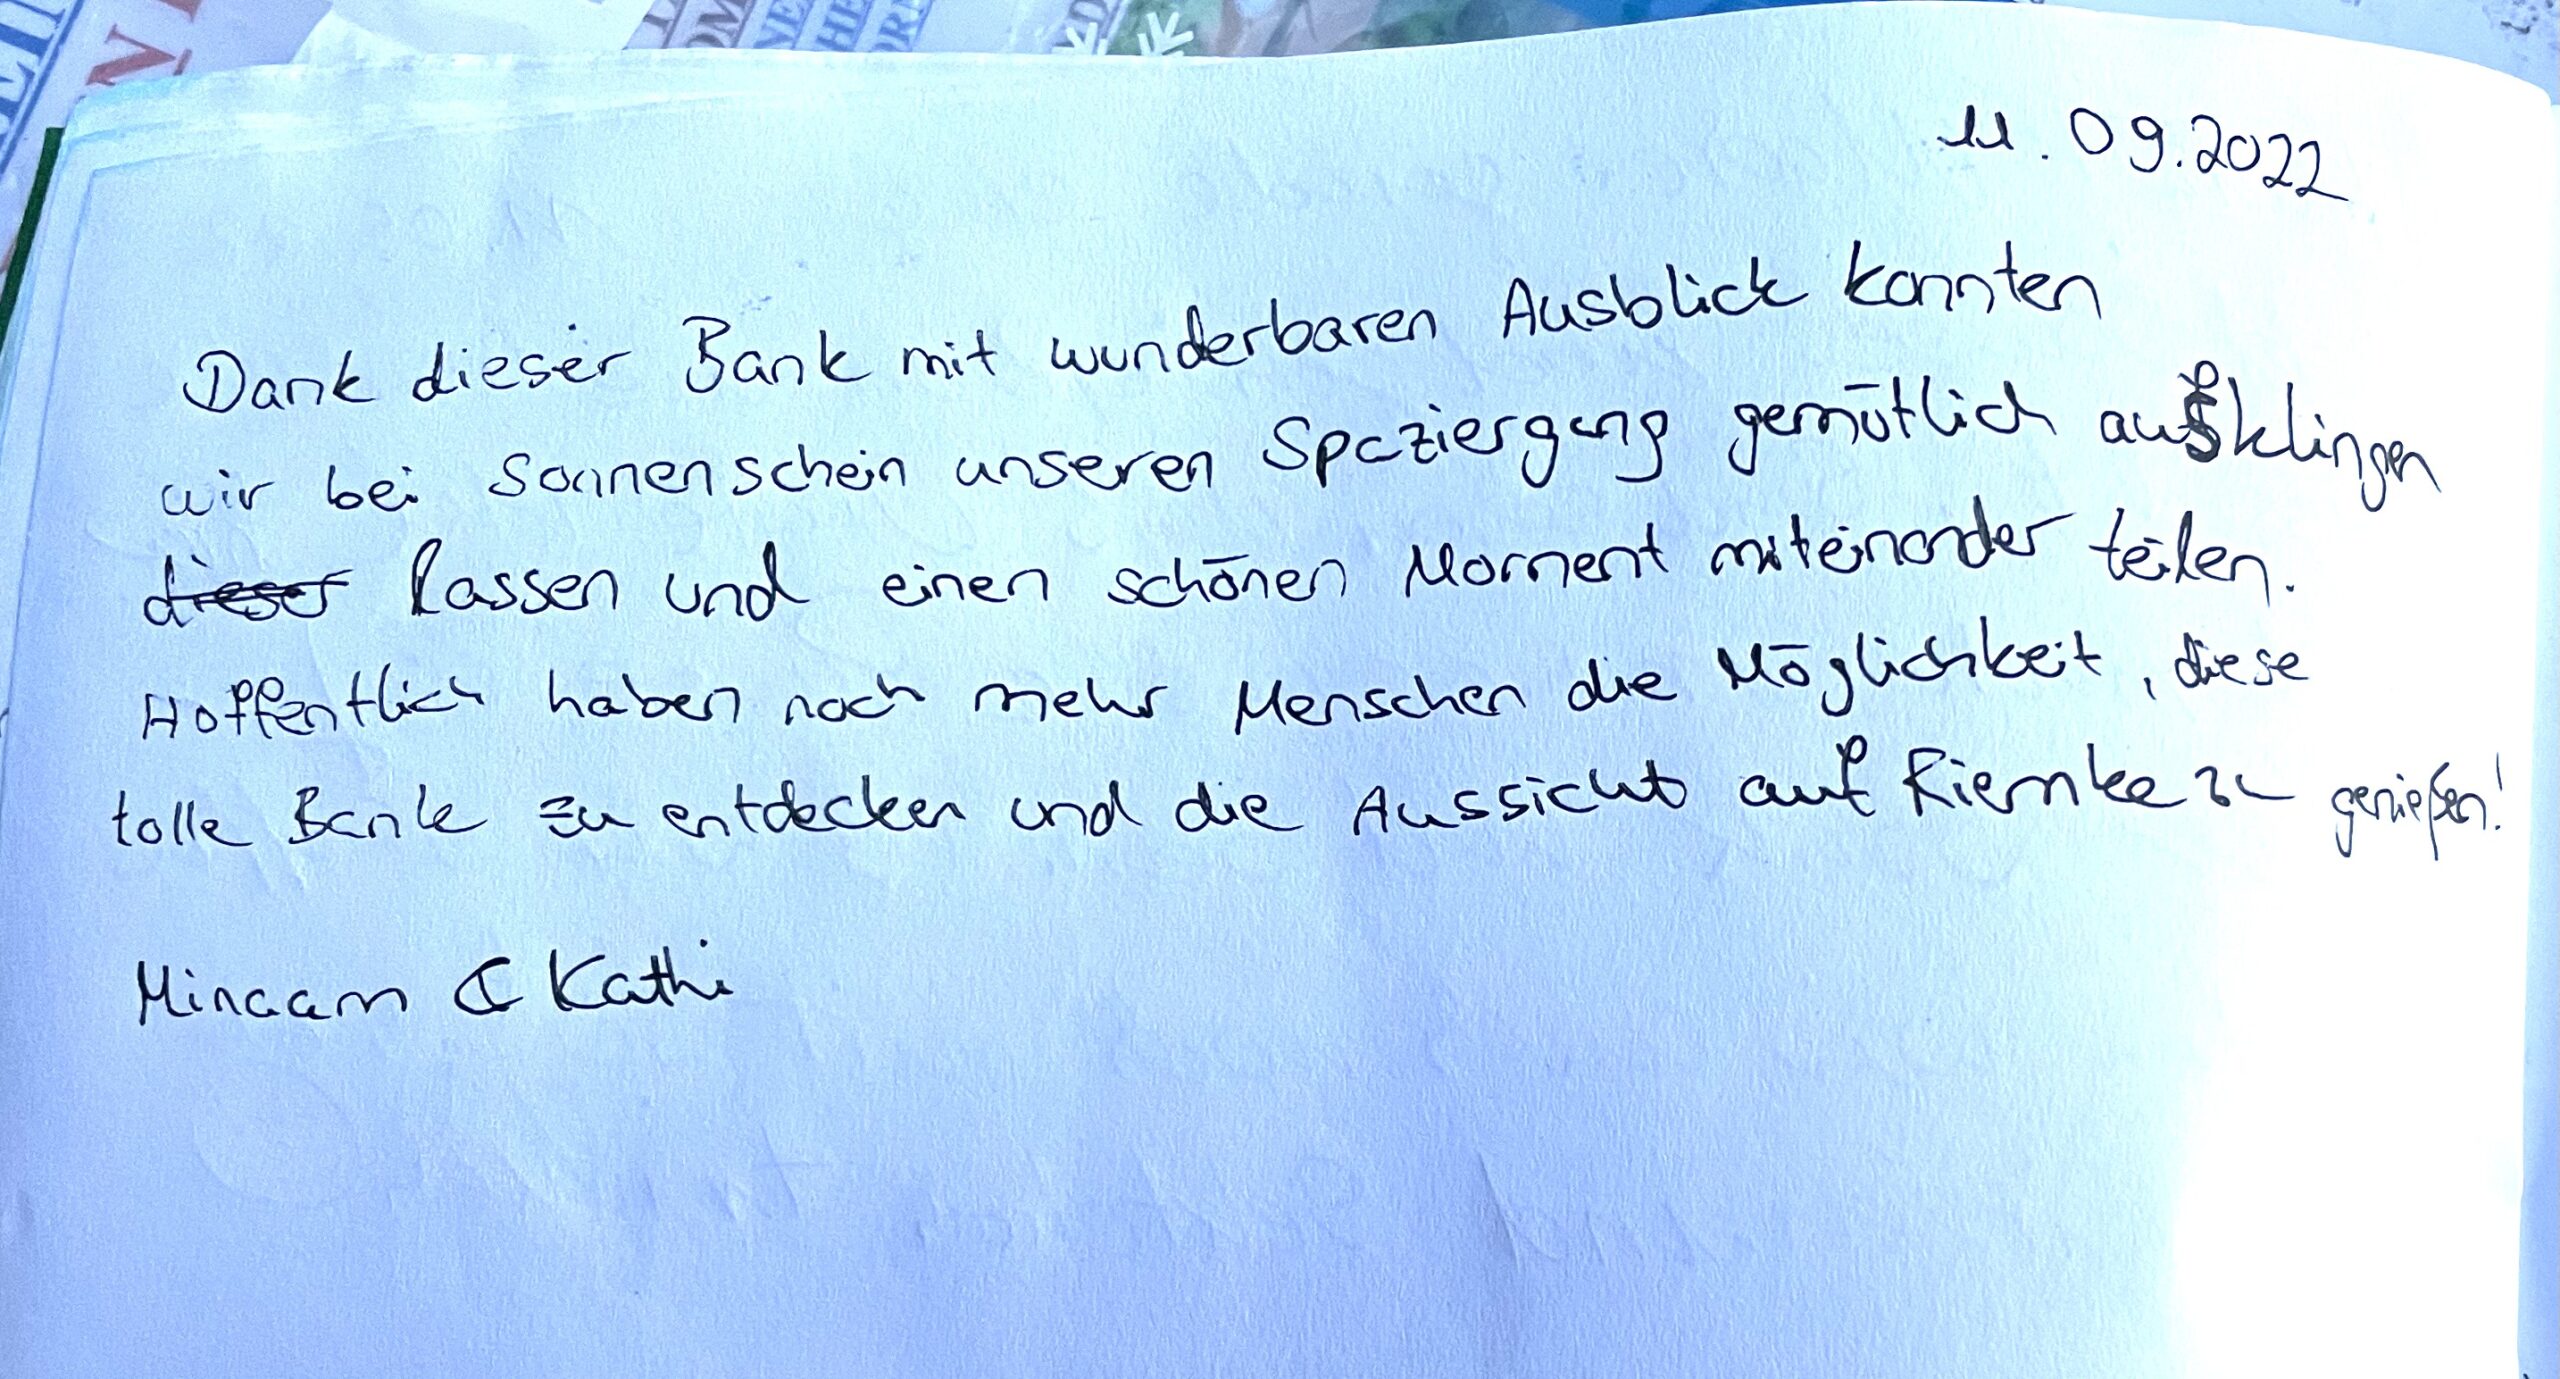 11.09.2022
Dank dieser Bank mit wunderbaren Ausblick konnten
wir bei Sonnenschein unseren Spaziergang gemütlich ausklingen
dieser lassen und einen schönen Moment miteinander teilen.
Hoffentlich haben noch mehr Menschen die Möglichkeit, diese
tolle Bank zu entdecken und die Aussicht auf Riemke zu genießen!
& Kathi